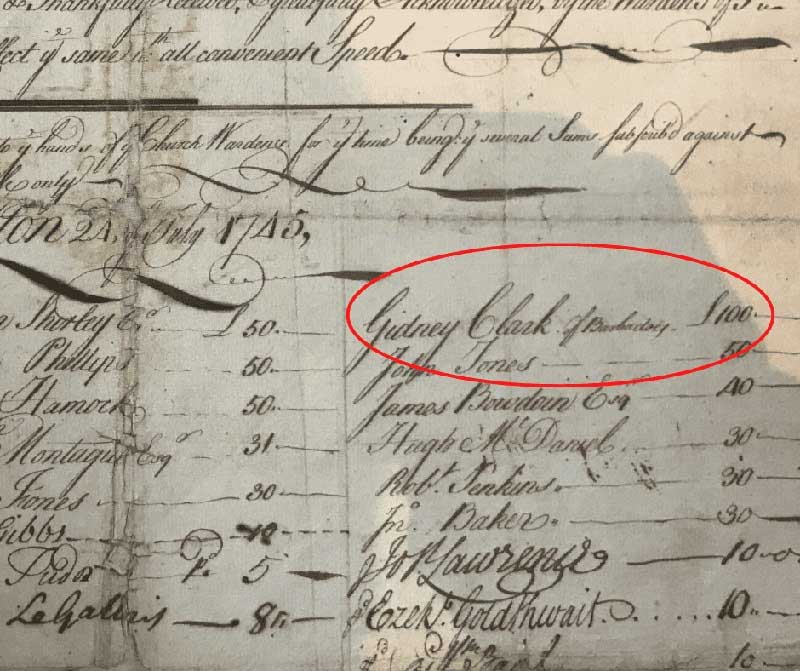 Thankfully Received, & gratefully Acknowledg'd, by the Wardens of
y same wth all convenient Speed.
to y hands of y Church Wardens for y time being, y several Sums subscrib'd against
only
24 July 1745,
Shirley Esqr £50.
Phillips 50.
Hamock 50.
Montague Esqr 31
Jones 30
Gibbs
Tudor P. 5
LeGallais 80
Gidney Clark of Barbadoes £100
John Jones 50
James Bowdoin Esqr 40
Hugh Mc Daniel 30
Robt. Jenkins 30
Jno. Baker 30
Lawrence 10
Ezekl. Goldthwait 10
10